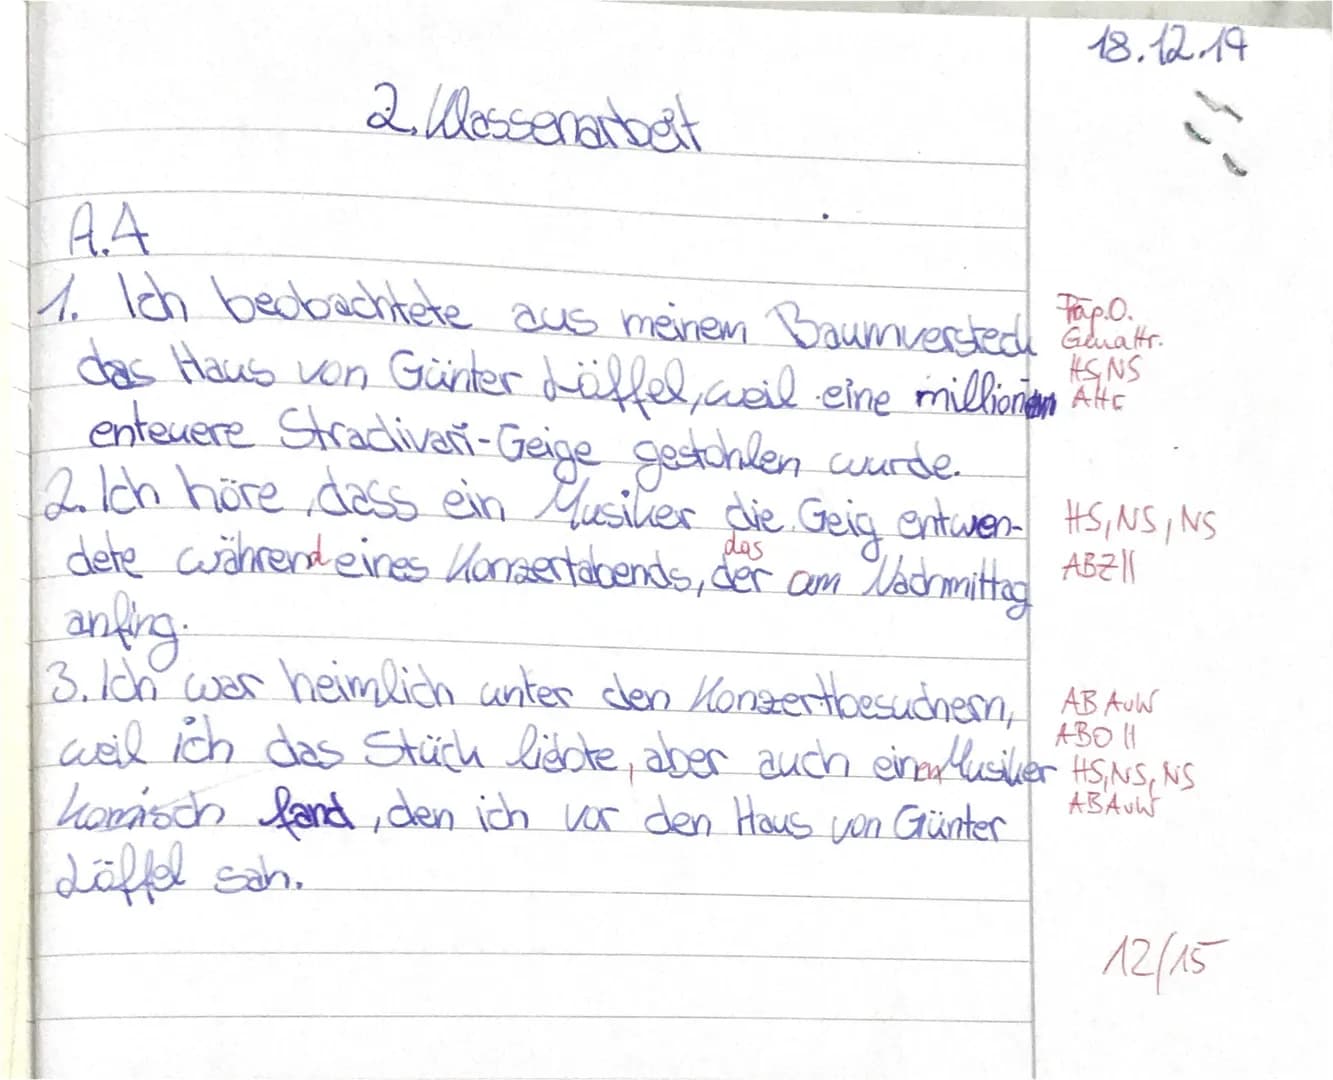 18.12.19
2. Klassenarbeit
A.A
1. Ich beobachtete aus meinem Baumversteck
Präp.O.
Genattr.
das Haus von Günter Löffel, weil eine millionen
HS, NS
Attr
enteuere Stradivari-Geige gestohlen wurde.
2. Ich höre, dass ein Musiker die Geig entwen-
HS, NS, NS
das
dete während eines Konzertabends, der am Nachmittag
ABZ ||
anfing.
3. Ich war heimlich unter den Konzertbesuchern,
AB AuW
weil ich das Stück liebte, aber auch einen Musiker
ABO ||
HS, NS, NS
komisch fand, den ich vor den Haus von Günter
AB AuW
Löffel sah.
12/15